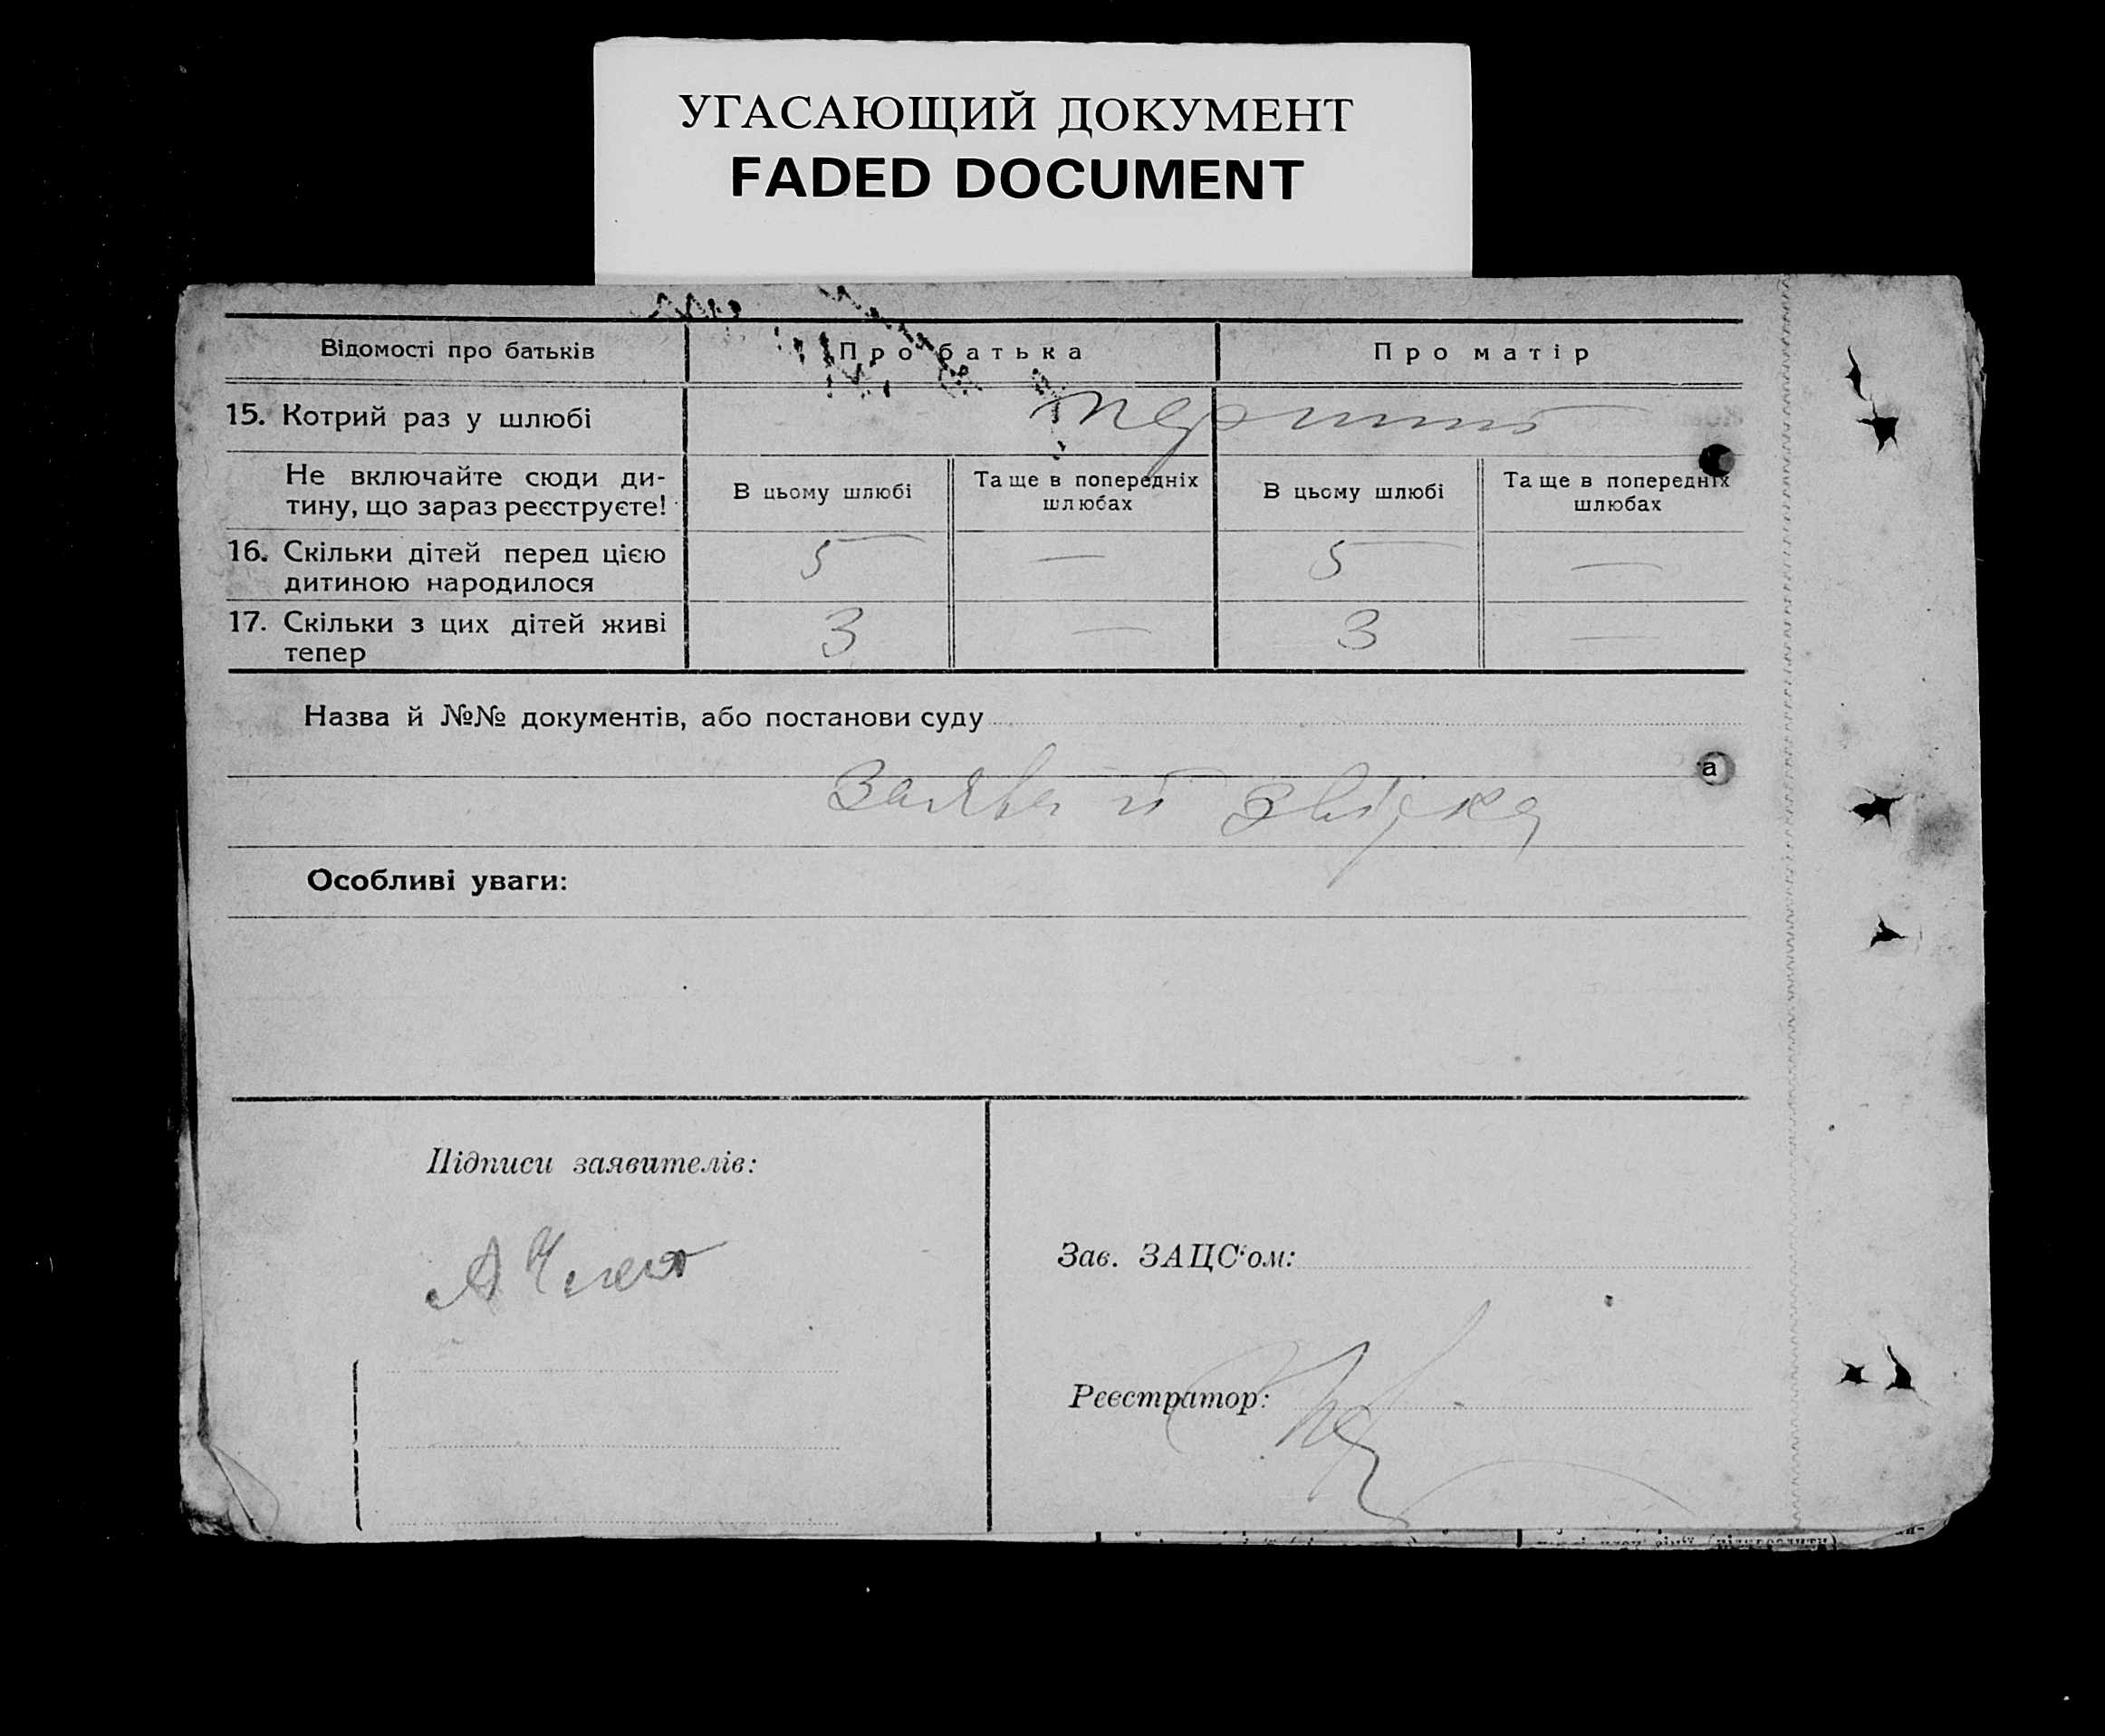 УГАСАЮЩИЙ ДОКУМЕНТ
FADED DOCUMENT
Відомості про батьків
Про батька
Про матір
15. Котрий раз у шлюбі
перший
Не включайте сюди ди-
тину, що зараз реєструєте!
В цьому шлюбі
Та ще в попередніх
шлюбах
В цьому шлюбі
Та ще в попередніх
шлюбах
16. Скільки дітей перед цією
дитиною народилося
5 — 5 —
17. Скільки з цих дітей живі
тепер
3 — 3 —
Назва й №№ документів, або постанови суду
а
Заява й звідка
Особливі уваги:
Підписи заявителів:
Зав. ЗАЦС'ом:
Реєстратор: